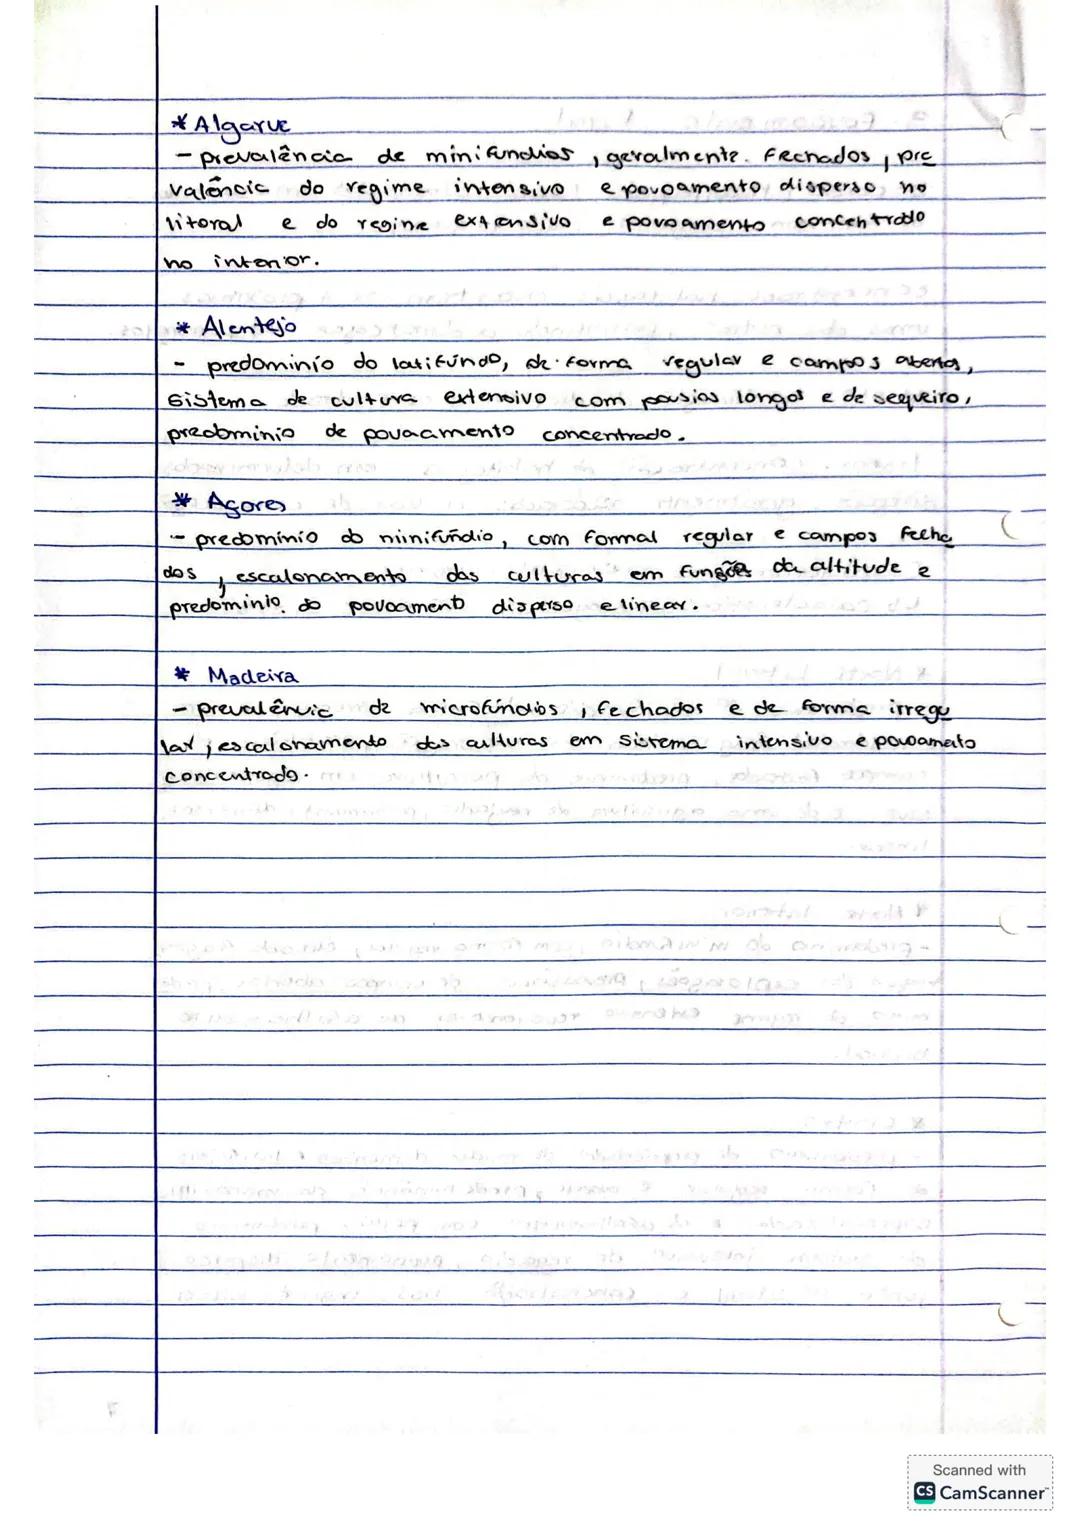 * Algarve
- prevalência de minifundios , geralmente. Fechados , pre
valência do regime intensivo e povoamento disperso no
litoral e do regime extensivo e povoamento concentrado
no interior.
* Alentejo
- predominio do latifúndo, de forma regular e campos abertos,
sistema de cultura extensivo com pousios longos e de sequeiro,
predominio de povoamento concentrado.
* Açores
- predominio do minifúndio, com formal regular e campos fecha
dos , escalonamento das culturas em funções da altitude e
predominio do povoament disperso e linear.
* Madeira
- prevalência de microfúndios , fechados e de forma irregu
lar , escalonamento das culturas em sistema intensivo e povoamento
concentrado.
7
Scanned with
CS CamScanner